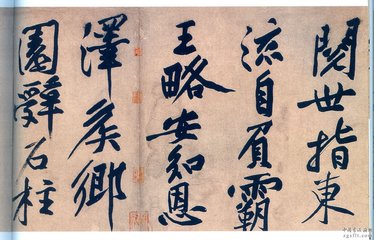 閱世指東
流自負霸
王略安知恩
澤侯鄉
園辭石柱